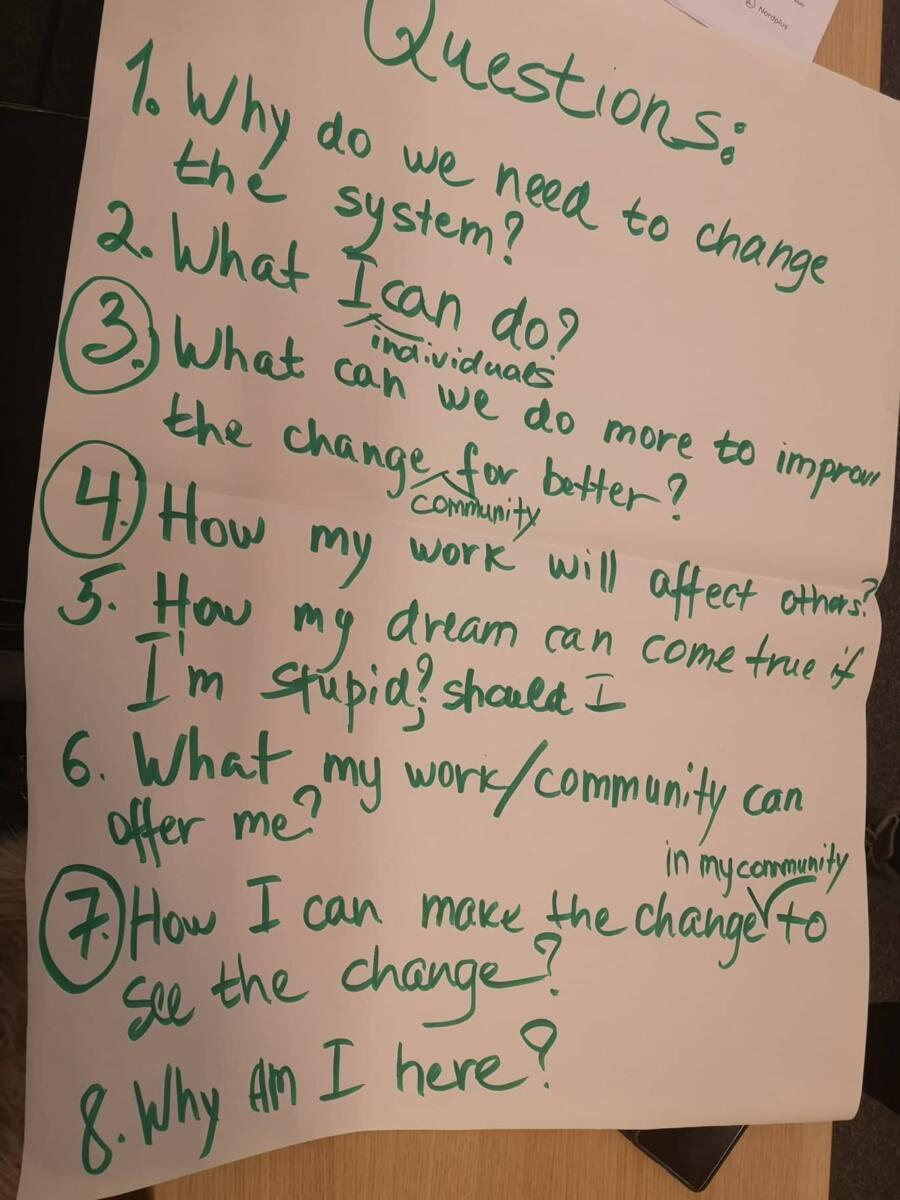 Nordplus
Questions:
1. Why do we need to change
the system?
2. What I can do?
individuals
3. What can we do more to improv
the change for better?
community
4. How my work will affect others?
5. How my dream can come true if
I'm stupid? should I
6. What my work/community can
offer me?
in my community
7. How I can make the change to
see the change?
8. Why Am I here?